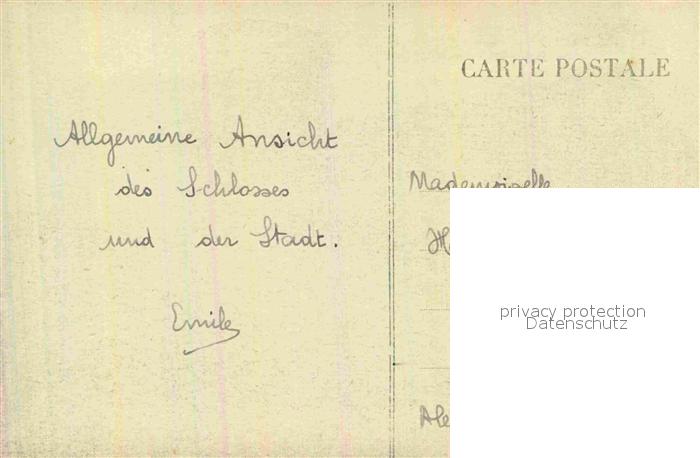 CARTE POSTALE
Allgemeine Ansicht
des Schlosses
und der Stadt.
Emile
Mademoiselle
privacy protection
Datenschutz